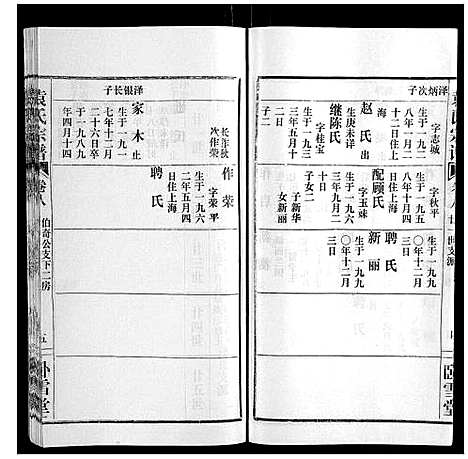 泽炳次子
字志城
生于一九一
八年一月二
十二日住上
海
赵氏出
继陈氏
生庚未详
字桂宝
生于一九二
三年五月十
二日
子二
字秋平
生于一九五
八年十月四
日住上海
配顾氏
字玉妹
生于一九六
三年九月二
子女二
子新华
女新丽
生于一九九
〇年十二月
三日
聘氏
新丽
生于一九九
〇年十二月
三日
袁氏宗谱
卷八
伯奇公支下二房
五
卧雪堂
泽银长子
家木止
生于一九一
七年十二月
二十六日卒
于一九八九
年四月十四
长作秋
次作荣
作荣
字荣平
生于一九六
二年五月四
日住上海
聘氏
卧雪堂